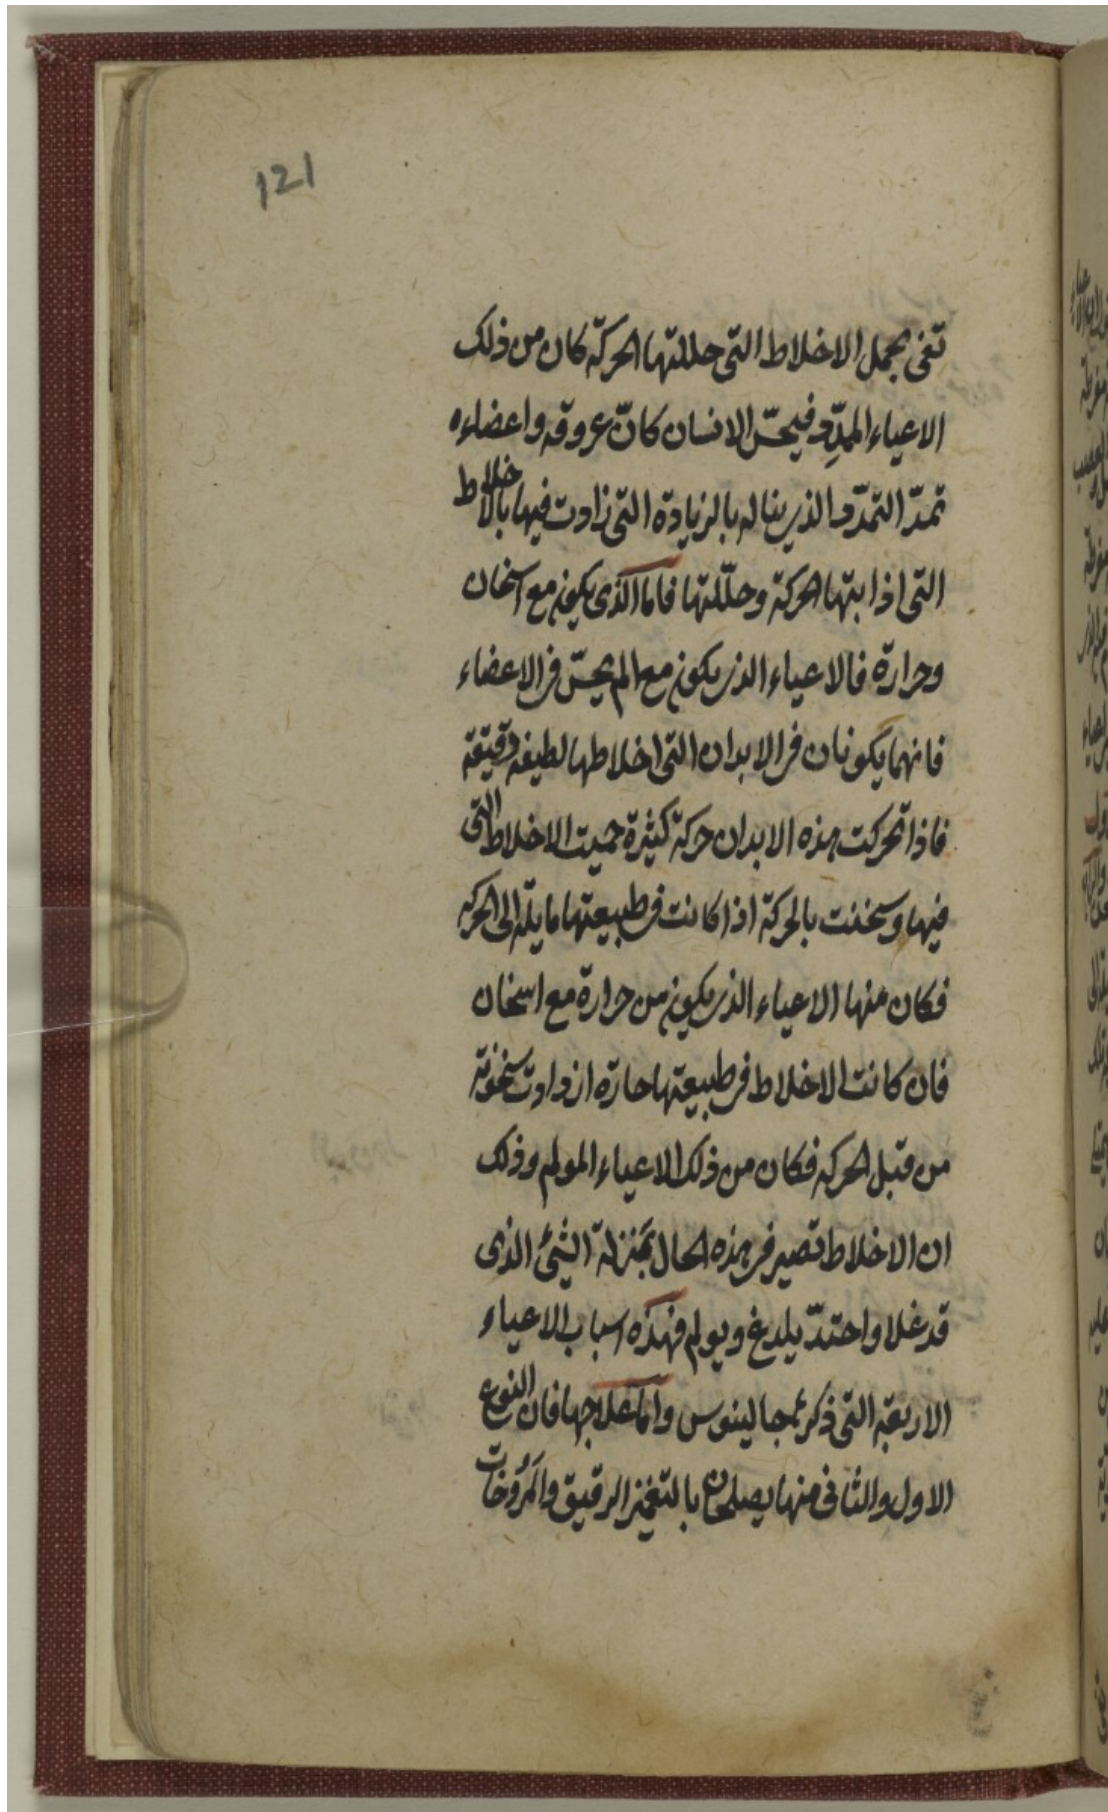 121
تفى بحمل الاخلاط التى حللتها الحركة كان من ذلك
الاعياء الممدّد فيحسّ الانسان كانّ عروقه واعضاءه
تمدّ التمدّد الذى يناله بالزيادة التى زادت فيها بالاخلاط
التى اذابتها الحركة وحلّلتها فاما الذى يكون مع اسخان
وحرارة فالاعياء الذى يكون مع الم يحسّ فى الاعضاء
فانهما يكونان فى الابدان التى اخلاطها لطيفة دقيقة
فاذا تحركت هذه الابدان حركة كثيرة حميت الاخلاط التى
فيها وسخنت بالحركة اذا كانت فى طبيعتها مايلة الى الحركه
فكان منها الاعياء الذى يكون من حرارة مع اسخان
فان كانت الاخلاط فى طبيعتها حارة ازدادت سخونة
من قبل الحركه فكان من ذلك الاعياء المولم وذلك
ان الاخلاط تصير فى هذه الحال بمنزلة الشئ الذى
قد غلا واحتدّ يلدغ ويولم فهذه اسباب الاعياء
الاربعة التى ذكرها جالينوس واما علاجها فان النوع
الاول والثانى منها يصلحان بالتغميز الرقيق والمروخات